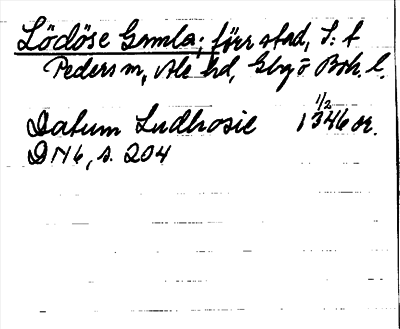 Lödöse Gamla; förr stad, S:t
Peders sn, Ale hd, Gbg o Boh. l.
Datum Ludhosie 1/2 1346 or.
DN 6, s. 204